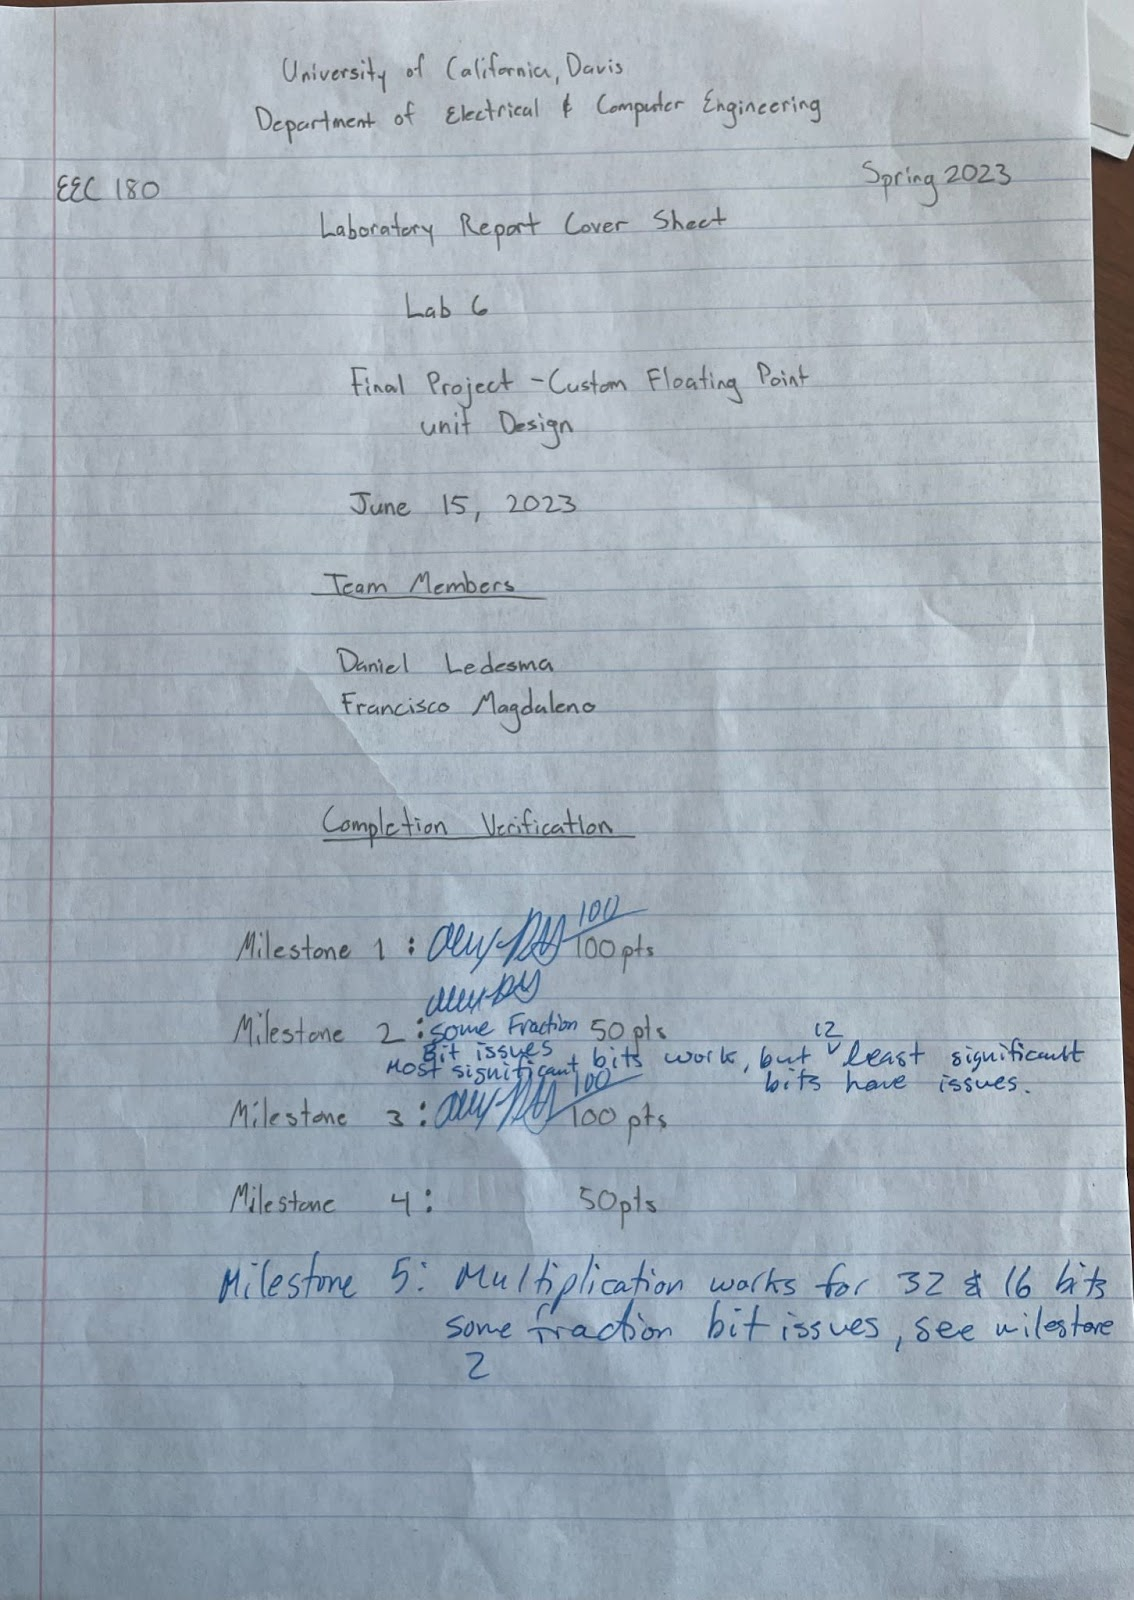 University of California, Davis
Department of Electrical & Computer Engineering
EEC 180
Spring 2023
Laboratory Report Cover Sheet
Lab 6
Final Project - Custom Floating Point
unit Design
June 15, 2023
Team Members
Daniel Ledesma
Francisco Magdaleno
Completion Verification
Milestone 1 : 100/100 pts
Milestone 2 : some Fraction 50 pts
Bit issues
Most significant bits work, but 12 least significant
bits have issues.
Milestone 3 : 100/100 pts
Milestone 4 : 50pts
Milestone 5: Multiplication works for 32 & 16 bits
some fraction bit issues, see milestone
2